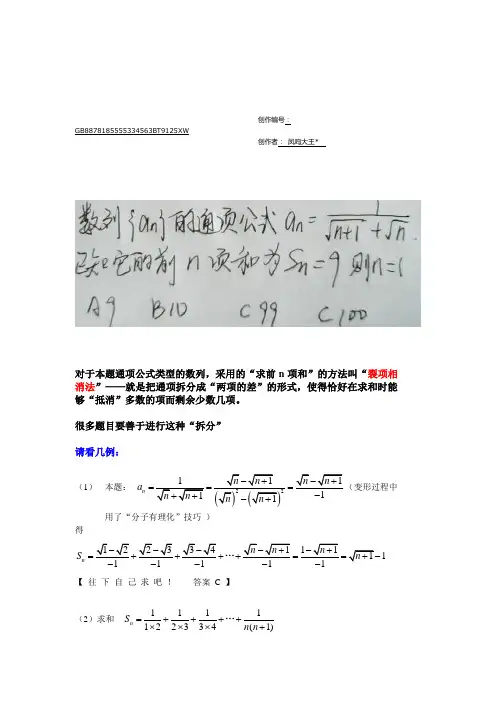 创作编号：
GB8878185555334563BT9125XW
创作者： 凤呜大王*
数列{an}的通项公式 an= 1/(√(n+1)+√n).
已知它的前 n 项和为 Sn=9 则n=(
A 9 B 10 C 99 C 100
对于本题通项公式类型的数列，采用的“求前 n 项和”的方法叫“裂项相
消法”——就是把通项拆分成“两项的差”的形式，使得恰好在求和时能
够“抵消”多数的项而剩余少数几项。
很多题目要善于进行这种“拆分”
请看几例：
（1） 本题： a_n = 1/(√n+√(n+1)) = (√n-√(n+1))/((√n)²-(√(n+1))²) = (√n-√(n+1))/(-1)（变形过程中
用了“分子有理化”技巧 ）
得
S_n = (√1-√2)/(-1) + (√2-√3)/(-1) + (√3-√4)/(-1) + … + (√n-√(n+1))/(-1) = (1-√(n+1))/(-1) = √(n+1)-1
【 往 下 自 己 求 吧 ！ 答案 C 】
（2）求和 S_n = 1/(1×2) + 1/(2×3) + 1/(3×4) + … + 1/(n(n+1))